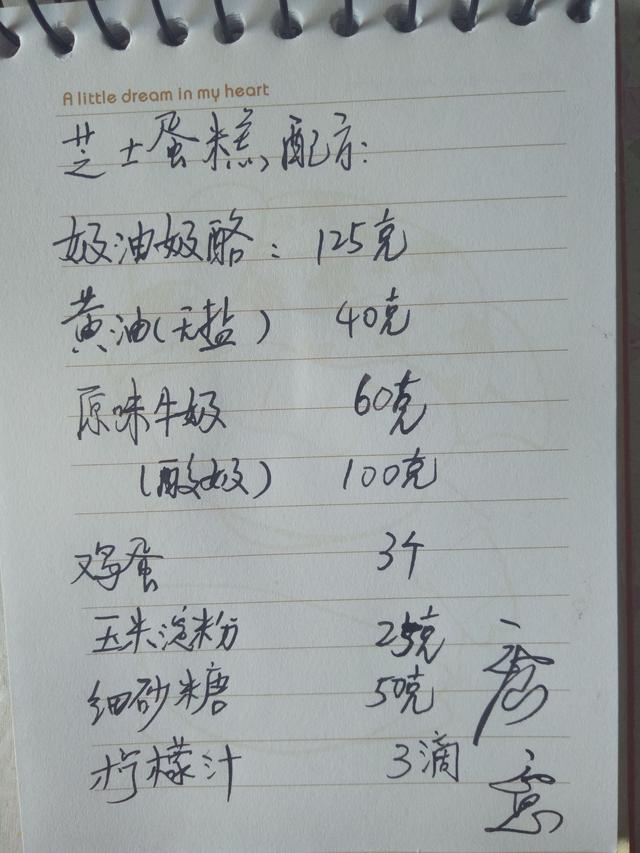 A little dream in my heart
芝士蛋糕配方:
奶油奶酪: 125克
黄油(无盐) 40克
原味牛奶 60克
(酸奶) 100克
鸡蛋 3个
玉米淀粉 25克
细砂糖 50克
柠檬汁 3滴